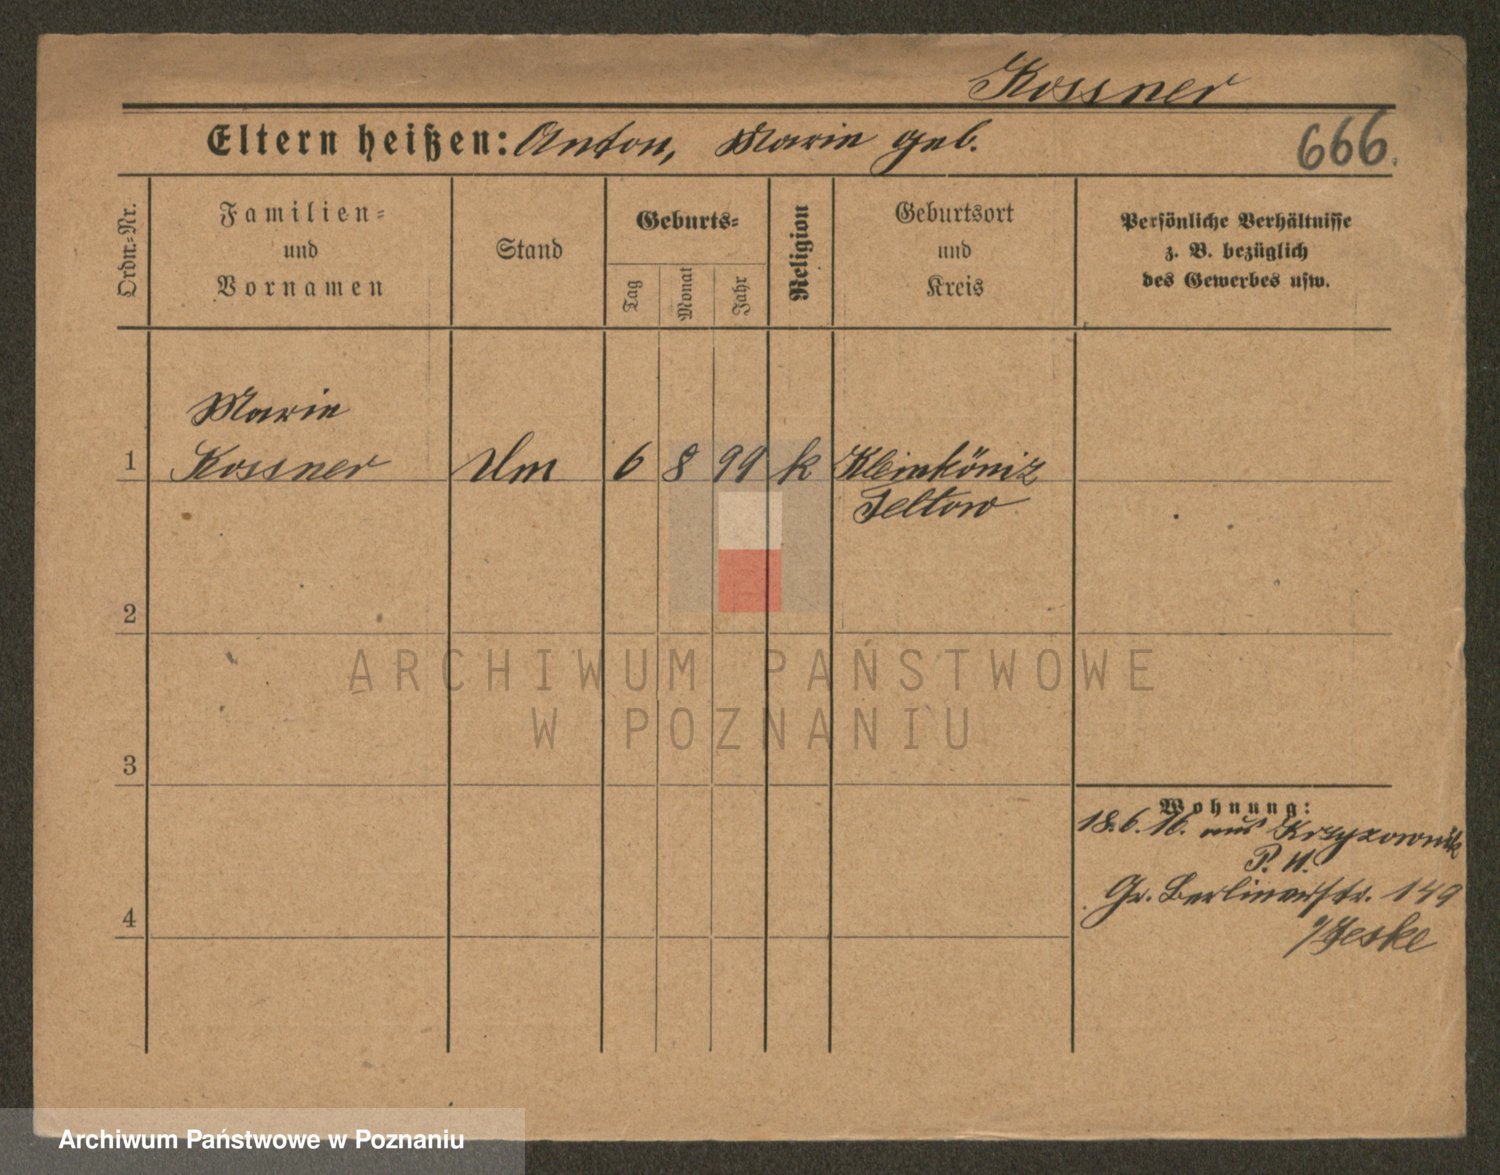 Kossner
Eltern heißen: Anton, Marie geb.
666.
Ordn.=Nr.
Familien=
und
Vornamen
Stand
Geburts=
Tag
Monat
Jahr
Religion
Geburtsort
und
Kreis
Persönliche Verhältnisse
z. B. bezüglich
des Gewerbes usw.
Marie
1 Kossner 6 8 99 k Kleinköniz
Teltow
2
3
4
Wohnung:
18.6.16. aus Krzyzownik
P. W.
Gr. Berlinerstr. 149
b/Jeske
ARCHIWUM PAŃSTWOWE
W POZNANIU
Archiwum Państwowe w Poznaniu